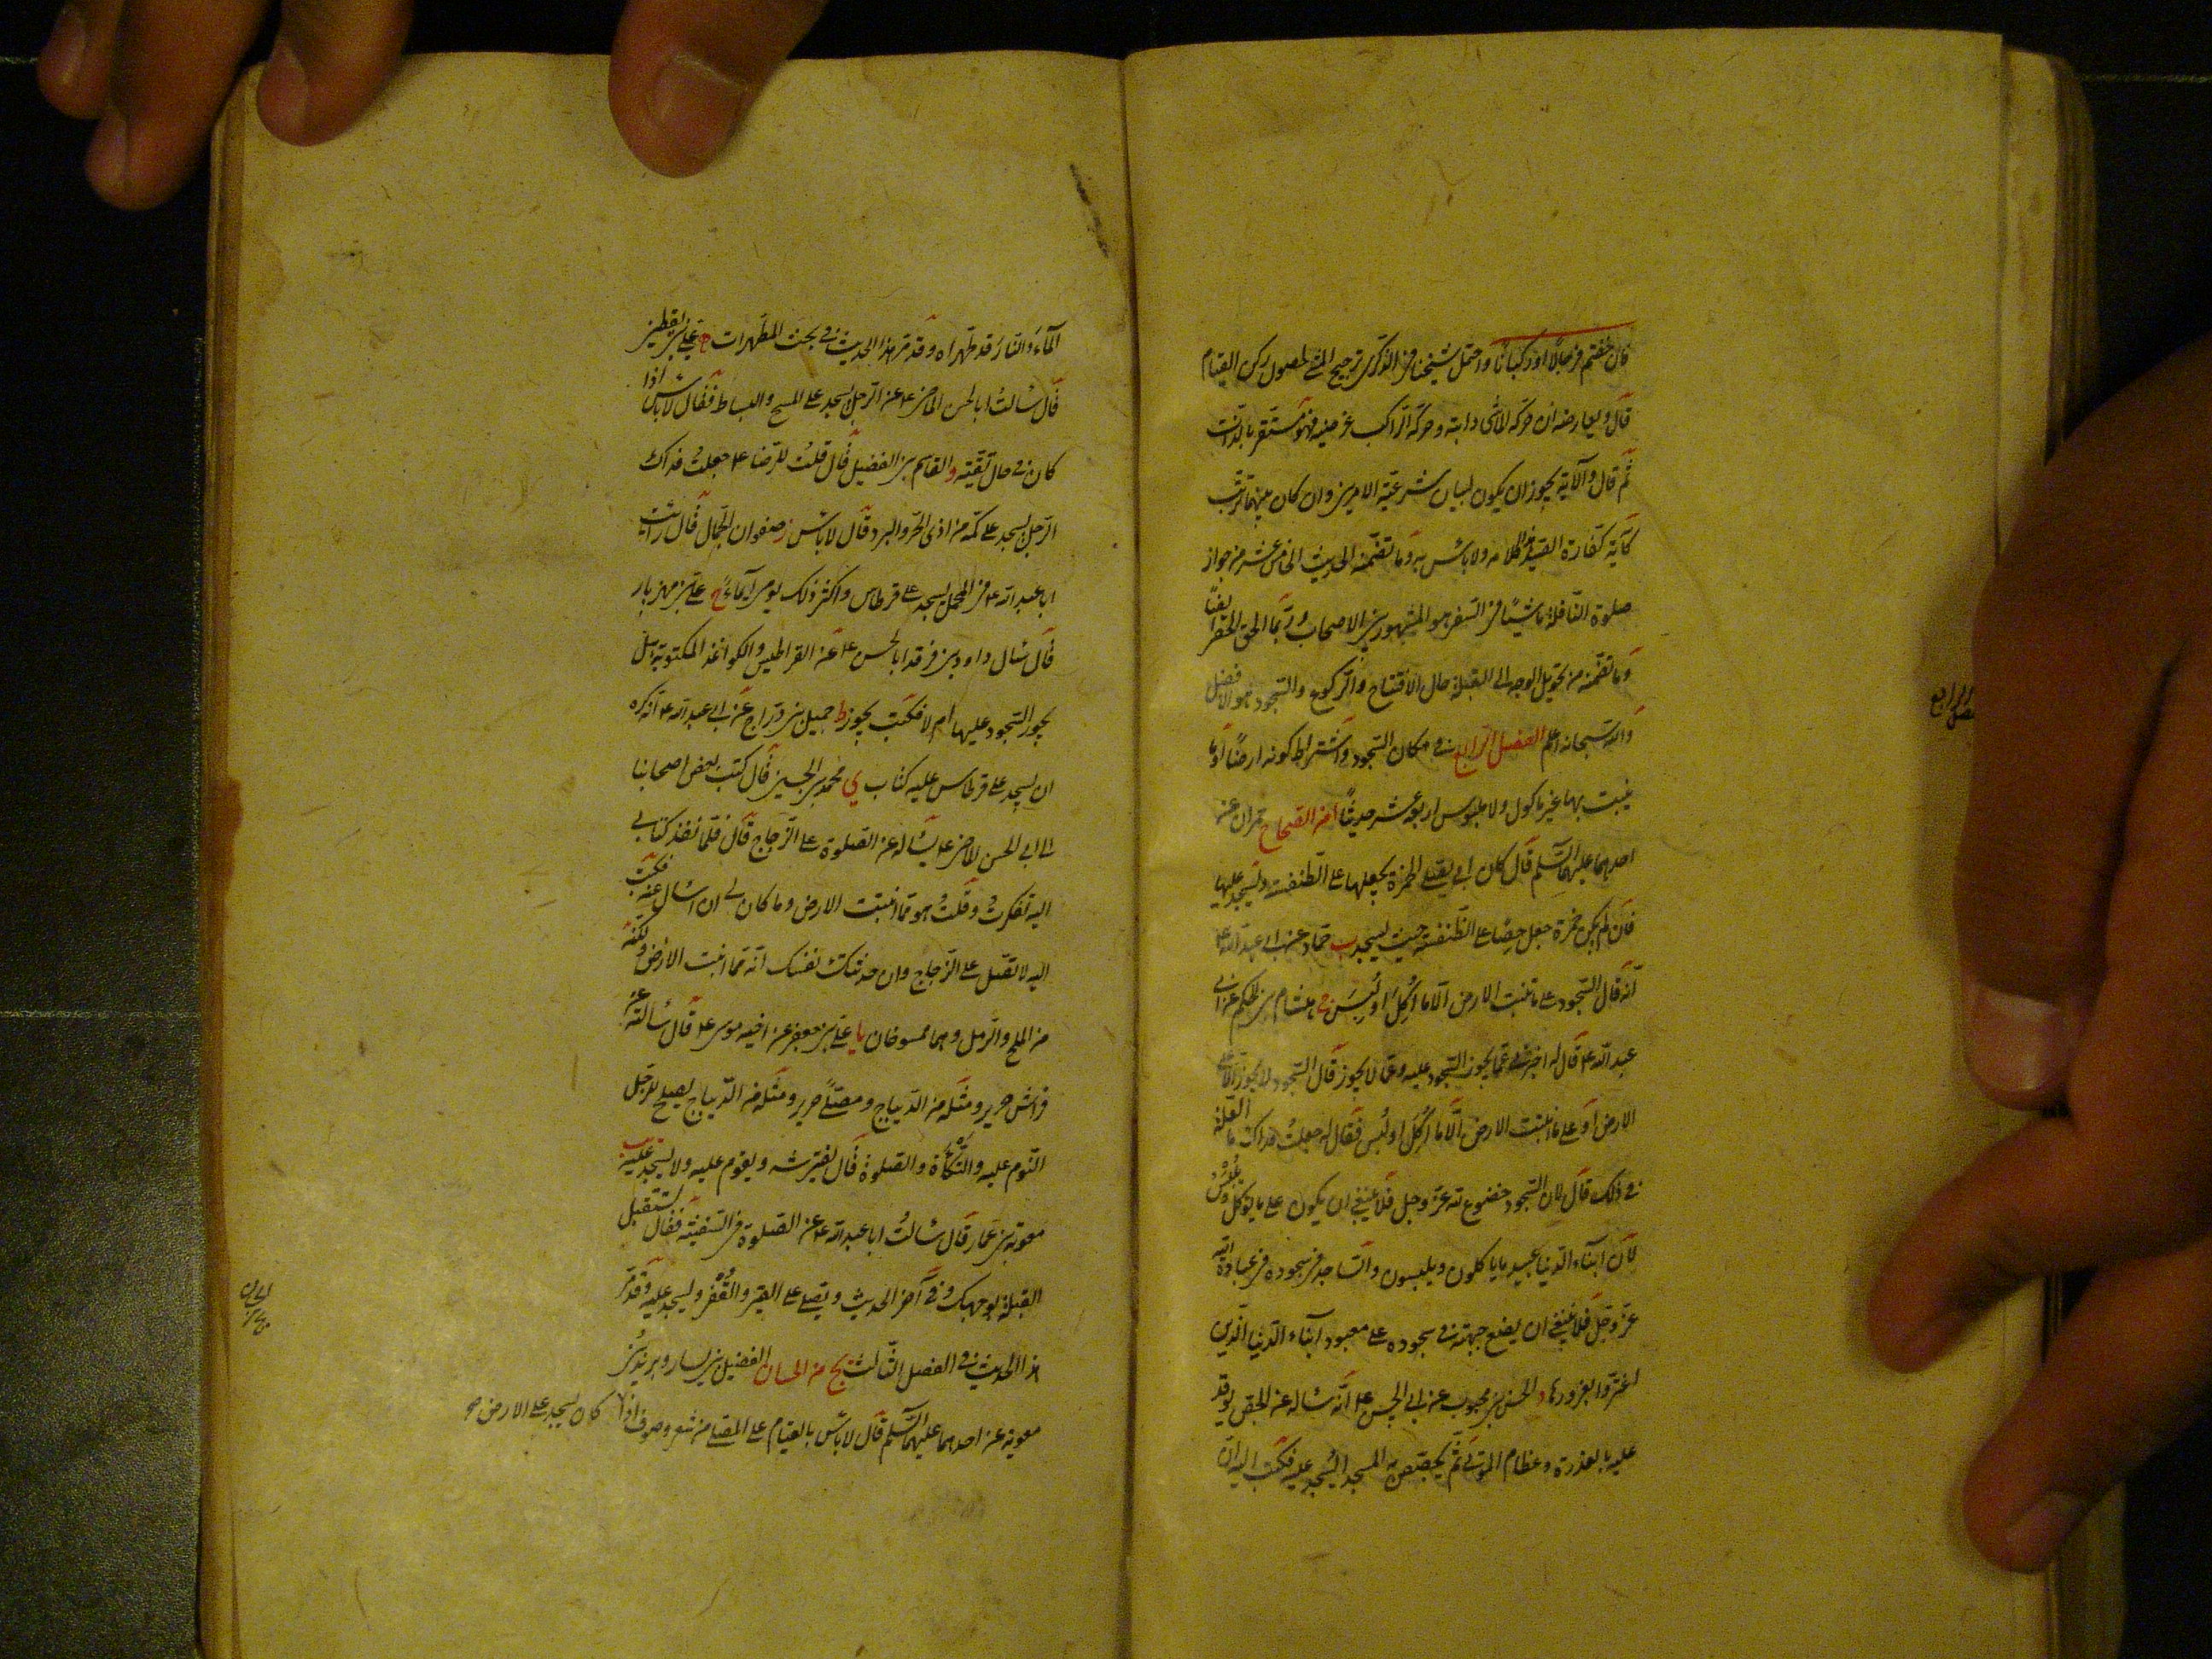 فان خفتم فرجالا او ركبانا واحتمل شيخنا في الذكرى ترجيح المشي لحصول ركن القيام
قال ويعارضه ان حركة الماشي ذاتية وحركة الراكب عرضية فهو مستقر بالذات
ثم قال والآية يجوز ان يكون لبيان شرعية الامرين وان كان بينهما ترتب
كآية كفارة الصيد هذا كلامه ولا باس به وما تضمنه الحديث الخامس عشر من جواز
صلوة النافلة ماشيا في السفر هو المشهور بين الاصحاب وربما الحق الحضر ايضا
وما تضمنه من تحويل الوجه الى القبلة حال الافتتاح والركوع والسجود هو الافضل
والله سبحانه اعلم الفصل الرابع في مكان السجود واشتراط كونه ارضا او ما
ينبت بها غير ماكول ولا ملبوس اربعة عشر حديثا ا من الصحاح حمران عن
احدهما عليهما السلم قال كان ابي يصلي على الخمرة يجعلها على الطنفسة ويسجد عليها
فان لم يكن خمرة جعل حصا على الطنفسة حيث يسجد ب حماد عن ابي عبد الله ع
انه قال السجود على ما تنبت الارض الا ما اكل او لبس ج هشام بن الحكم عن ابي
عبد الله ع قال له اخبرني عما يجوز السجود عليه وعما لا يجوز قال السجود لا يجوز الا على
الارض او على ما انبتت الارض الا ما اكل او لبس فقال له جعلت فداك ما العلة
في ذلك قال لان السجود خضوع لله عز وجل فلا ينبغي ان يكون على ما يؤكل ويلبس
لان ابناء الدنيا عبيد ما ياكلون ويلبسون والساجد في سجوده في عبادة الله
عز وجل فلا ينبغي ان يضع جبهته في سجوده على معبود ابناء الدنيا الذين
اغتروا بغرورها د الحسن بن محبوب عن ابي الحسن ع انه ساله عن الجص يوقد
عليه بالعذرة وعظام الموتى ثم يجصص به المسجد ايسجد عليه فكتب اليه ان
الفصل الرابع
الماء والنار قد طهراه وقد مر هذا الحديث في بحث المطهرات ه علي بن يقطين
قال سالت ابا الحسن الماضي ع عن الرجل يسجد على المسح والبساط فقال لا باس اذا
كان في حال تقية و القاسم بن الفضيل قال قلت للرضا ع جعلت فداك
الرجل يسجد على كمه من اذى الحر والبرد قال لا باس ز صفوان الجمال قال رايت
ابا عبد الله ع في المحمل يسجد على قرطاس واكثر ذلك يومي ايماء ح علي بن مهزيار
قال سال داود بن فرقد ابا الحسن ع عن القراطيس والكواغذ المكتوبة هل
يجوز السجود عليها ام لا فكتب يجوز ط جميل بن دراج عن ابي عبد الله ع انه كره
ان يسجد على قرطاس عليه كتاب ي محمد بن الحسين قال كتب بعض اصحابنا
الى ابي الحسن الماضي ع يساله عن الصلوة على الزجاج قال فلما نفذ كتابي
اليه تفكرت وقلت هو مما انبتت الارض وما كان لي ان اسال عنه فكتب
اليه لا تصل على الزجاج وان حدثتك نفسك انه مما انبتت الارض ولكنه
من الملح والرمل وهما ممسوخان يا علي بن جعفر عن اخيه موسى ع قال سالته عن
فراش حرير ومثله من الديباج ومصلى حرير ومثله من الديباج يصلح للرجل
النوم عليه والتكأة والصلوة قال يفترشه ويقوم عليه ولا يسجد عليه يب
معوية بن عمار قال سالت ابا عبد الله ع عن الصلوة في السفينة فقال يستقبل
القبلة بوجهك وفي آخر الحديث ويصلي على القير والقفر ويسجد عليه وقد مر
هذا الحديث في الفصل الثالث يج من الحسان الفضيل بن يسار وبريد بن
معوية عن احدهما عليهما السلم قال لا باس بالقيام على المصلى من شعر وصوف اذا
كان يسجد على الارض صح